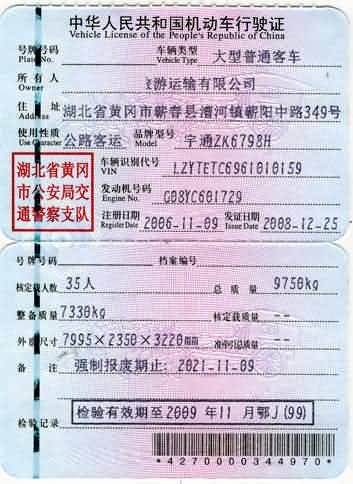 中华人民共和国机动车行驶证
Vehicle License of the People's Republic of China
号牌号码 Plate No. 车辆类型 Vehicle Type 大型普通客车
所有人 Owner 游运输有限公司
住址 Address 湖北省黄冈市蕲春县漕河镇蕲阳中路349号
使用性质 Use Character 公路客运 品牌型号 Model 宇通ZK6798H
湖北省黄冈市公安局交通警察支队
车辆识别代号 VIN LZYTETC6961010159
发动机号码 Engine No. G08YC601729
注册日期 Register Date 2006-11-09 发证日期 Issue Date 2008-12-25
号牌号码 档案编号
核定载人数 35人 总质量 9750kg
整备质量 7330kg 核定载质量 --
外廓尺寸 7995×2350×3220 准牵引总质量 --
备注 强制报废期止: 2021-11-09
检验有效期至2009 年11 月鄂J(99)
检验记录
*4270000344970*